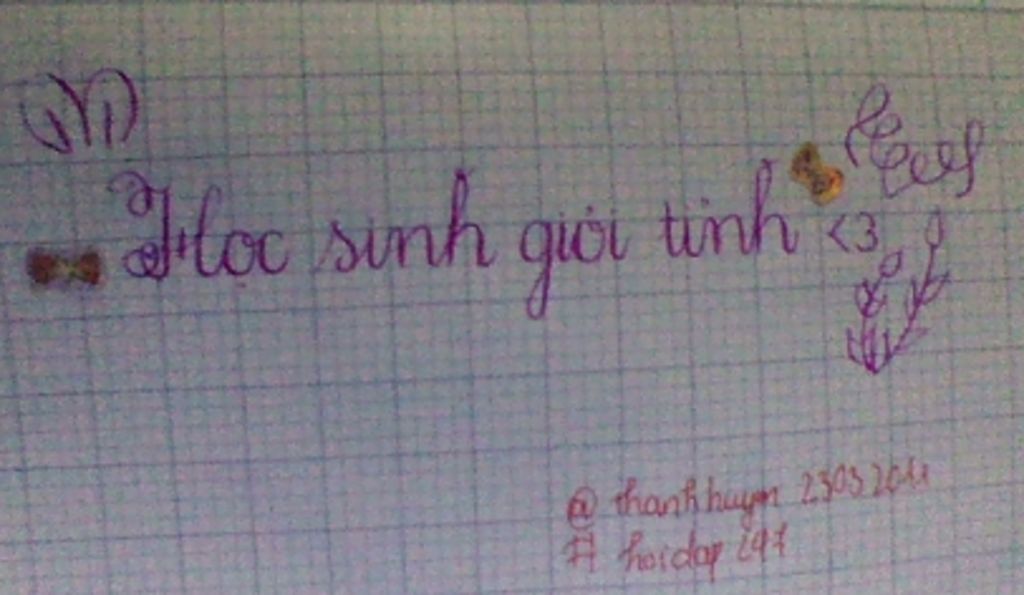 Học sinh giỏi tỉnh <3
@ thanhhuyen 23032011
# hoidap 247